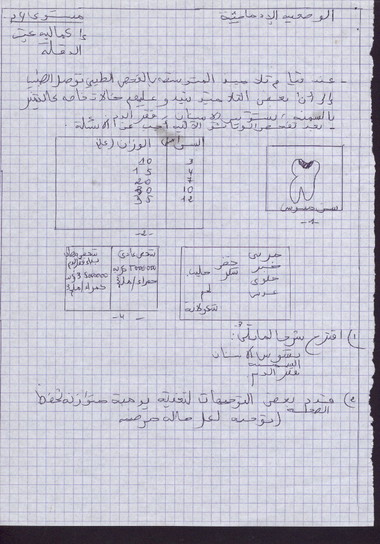 الوضعية الإدماجية
مستوى 4م
إكمالية
الدقلة
- عند قيام تلاميذ المتوسطة بالفحص الطبي توصل الطبيب
إلى أن بعض التلاميذ لديهم حالات خاصة
بالسمنة، تسوس الأسنان، فقر الدم
- بعد تفحص الوثائق التالية أجب عن الأسئلة
السن الوزن (كغ)
3 10
4 15
7 20
10 30
12 35
- 2 -
سن مسوس
- 1 -
خبز
حلوى
عدس
خضر
سكر
حليب
لحم
شكولاطة
شخص عادي
5000000
حمراء/ملم3
شخص مصاب
بفقر الدم
3500000
حمراء/ملم3
- 4 -
1) اقترح شرحا لمايلي:
تسوس الأسنان
السمنة
فقر الدم
2) قدم بعض التوجيهات لتغذية يومية متوازنة تحفظ الصحة
(توجيه لكل حالة مرضية